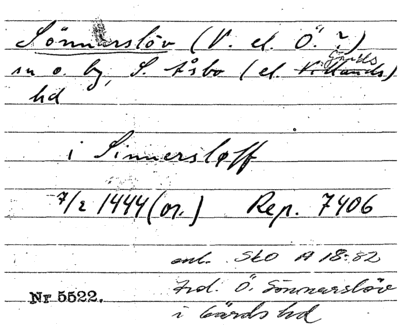 Sönnerslöv (V. el. Ö.?)
Gärds
sn o. by, S. Åsbo (el. Villands)
hd
i Sinnersløff
7/2 1444 (or.) Rep. 7406
enl. SkO A 18:82
trol. Ö. Sönnarslöv
i Gärds hd
Nr 5522.